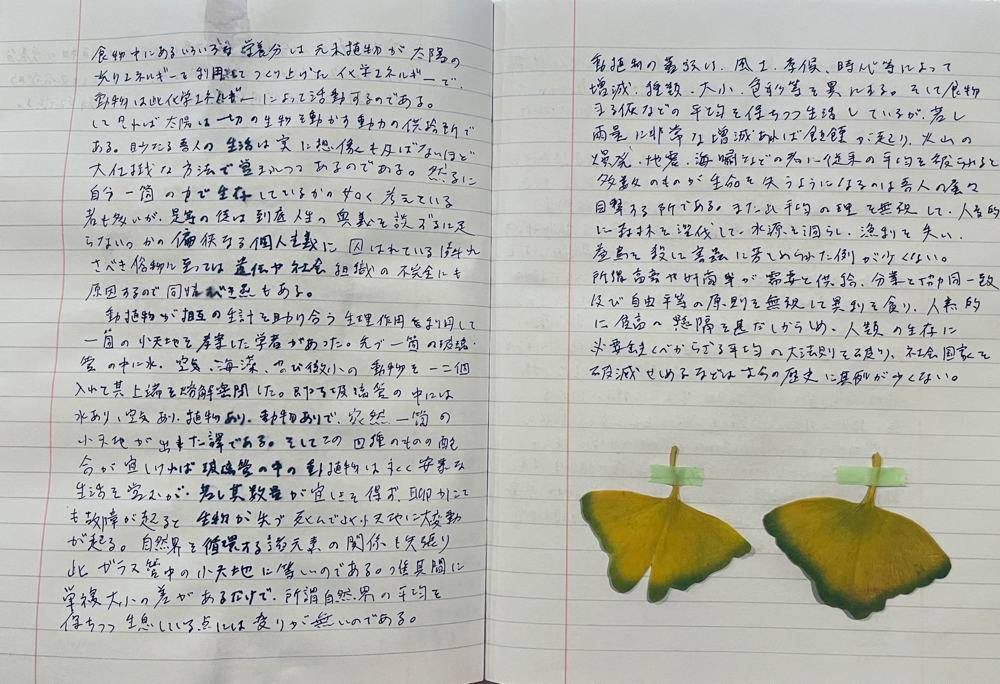 食物中にあるいろいろな営養分は元来植物が太陽の
光りエネルギーを利用してつくり上げた化学エネルギーで、
動物は此化学エネルギーによって活動するのである。
して見れば太陽は一切の生物を動かす動力の供給所で
ある。妙なる吾人の生活は実に想像も及ばないほど
大仕掛な方法で営まれつつあるのである。然るに
自分一箇の力で生存しているかの如く考えている
者も多いが、是等の徒は到底人生の奥義を談ずるに足
らない。かの偏狭なる個人主義に囚はれている憐れ
さべき俗物に至っては遺伝や社会組織の不完全にも
原因するので同情べき点もある。
動植物が相互の生計を助け合う生理作用を利用して
一箇の小天地を産業した学者があった。先づ一箇の玻璃
管の中に水、空気、海藻、及び微小の動物を一二個
入れて其上端を熔解密閉した。即ち玻璃管の中には
水あり、空気あり、植物あり、動物ありで、宛然一箇の
小天地が出来た譯である。そしてこの四種のものの配
合が宜しければ玻璃管の中の動植物は永く安楽な
生活を営むが、若し其数量が宜しきを得ず、聊かにて
も故障が起ると生物が先づ死んで此小天地に大変動
が起る。自然界を循環する諸元素の関係も矢張り
此ガラス管中の小天地に等しいのである。つ僅其間に
単複大小の差があるだけで、所謂自然界の平均を
保ちつつ生息している点には変りが無いのである。
動植物の員数は、風土、季候、時代等によって
増減、種類、大小、色彩等を異にする。そして食物
する仮などの平均を保ちつつ生活しているが、若し
両量に非常な増減あれば飢饉が起り、火山の
爆発、地震、海嘯などの為に従来の平均を破られると
多数のものが生命を失うようになるのは吾人の屡々
目撃する所である。また此平均の理を無視して、人為的
に森林を濫伐して、水源を涸らし、漁利を失い、
益鳥を殺して害虫に苦しめられた例が少くない。
所謂富豪や奸商輩が需要と供給、分業と協同一致
及び自由平等の原則を無視して異利を貪り、人為的
に貧富の懸隔を甚だしからしめ、人類の生存に
必要缺くべからざる平均の大法則を破り、社会国家を
破滅せしめるなどは古今の歴史に其例が少くない。